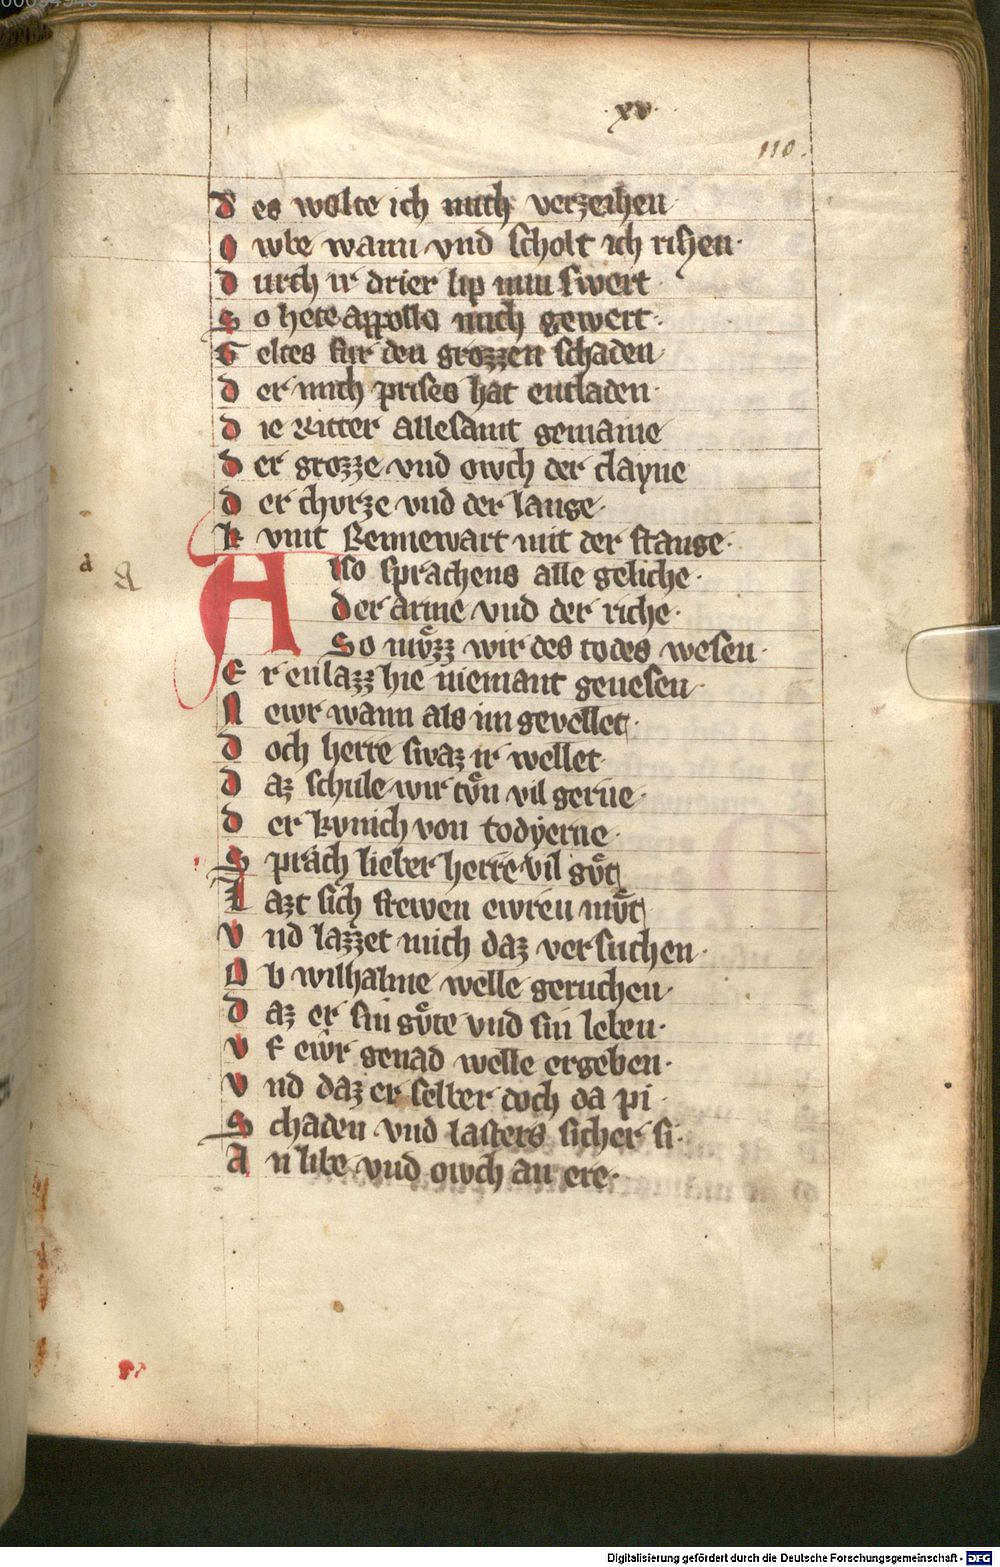 ·xv·
110.
d es wolte ich mich verzeihen
O wbe wann vnd scholt ich rihen·
d urch ir drier lip min swert
S o hete appollo mich gewert·
G eltes fur den grozzen schaden
d er mich prises hat entladen·
d ie Ritter allesamt gemaine
d er grozze vnd owch der clayne
d er churze vnd der lange·
k vmt Rennewart mit der stange·
a
A lso sprachens alle geliche·
der arme vnd der riche·
So mvͦzz wir des todes wesen·
E r enlazz hie niemant genesen·
N ewr wann als im gevellet·
d och herre swaz ir wellet·
d az schule wir tvͦn vil gerne·
d er kvnich von todyerne·
S prach lieber herre vil gvͦt
L azt sich frewen ewren mvͦt
v nd lazzet mich daz versuchen·
O b wilhalme welle geruchen·
d az er sin gvͦte vnd sin leben·
v f ewr genad welle ergeben·
v nd daz er selber doch da pi·
S chaden vnd lasters sicher si·
A n libe vnd owch an ere·
Digitalisierung gefördert durch die Deutsche Forschungsgemeinschaft - DFG